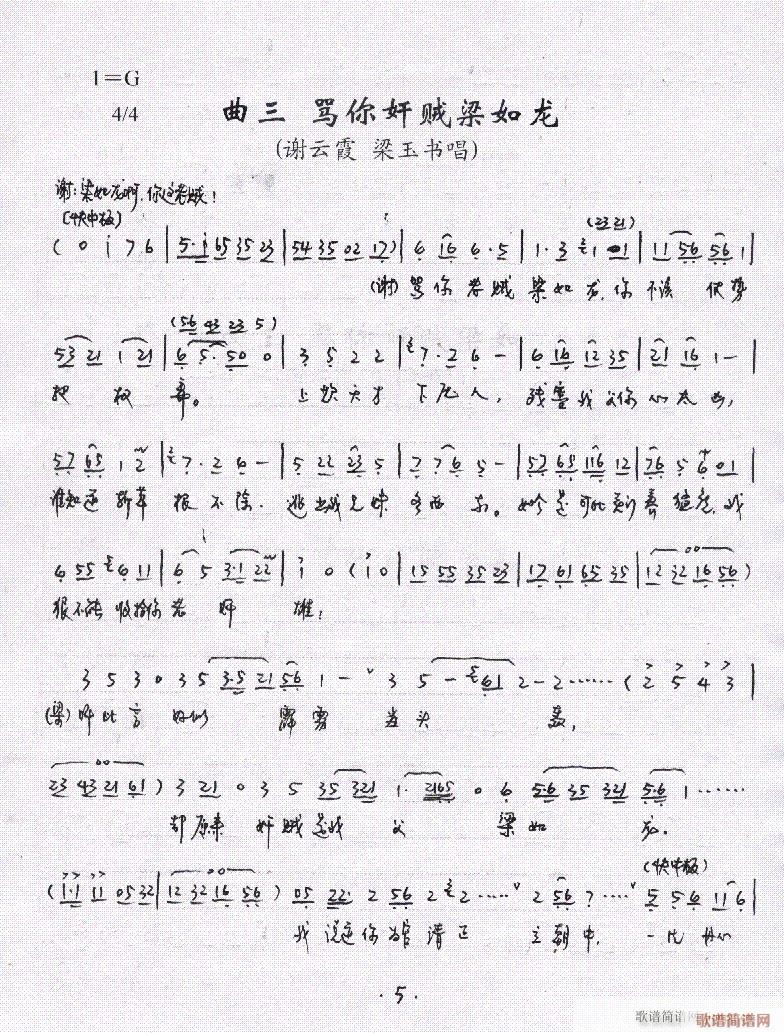 1=G
4/4
曲三 骂你奸贼梁如龙
(谢云霞 梁玉书唱)
谢:梁如龙啊,你这老贼!
(快中板)
( 0 i 7 6 | 5·i 65 35 23 | 54 35 02 17 ) | 6 16 6·5 | 1·3 1 01 | 11 56 56 1 |
(23 21)
(谢) 骂你老贼梁如龙,你不该使势
(56 43 23 5)
53 21 1 21 | 6 5·50 0 | 3 5 2 2 | 7·2 6 - | 6 16 12 35 | 21 16 1 - |
把权弄。 上欺天才下 人,残害我父你心太凶,
57 65 1 2 | 7·2 6 - | 5 22 23 5 | 7 76 5 - | 57 65 116 12 | 76 5 6 01 |
谁知道斩草根不除. 逃出我兄妹 西东。 我
6 55 6 11 | 6 5 3·1 22 | i 0 ( i 0 ) | 15 55 35 23 | 17 61 65 35 | 12 32 16 56 )
恨不能收拾你老奸雄;
3 5 3 0 3 5 3·5 21 56 1 - 3 5 - 61 2 - 2 ······ ( 2 5 4 3 |
(梁) 听此言好似霹雳当头轰,
23 43 21 61 ) 3 21 0 3 5 35 321 1· 2165 0 6 56 35 321 5·6 1 ······
却原来奸贼是我父梁如龙。
(快中板)
( 1·1 11 05 32 | 12 32 16 56 ) 05 22· 2 56 2 2 ····· 2 56 7 ····· 5 5 6 11 6 |
我说道你为官清正立朝中, 一片丹心
· 5 ·
歌谱简谱网
歌谱简谱网